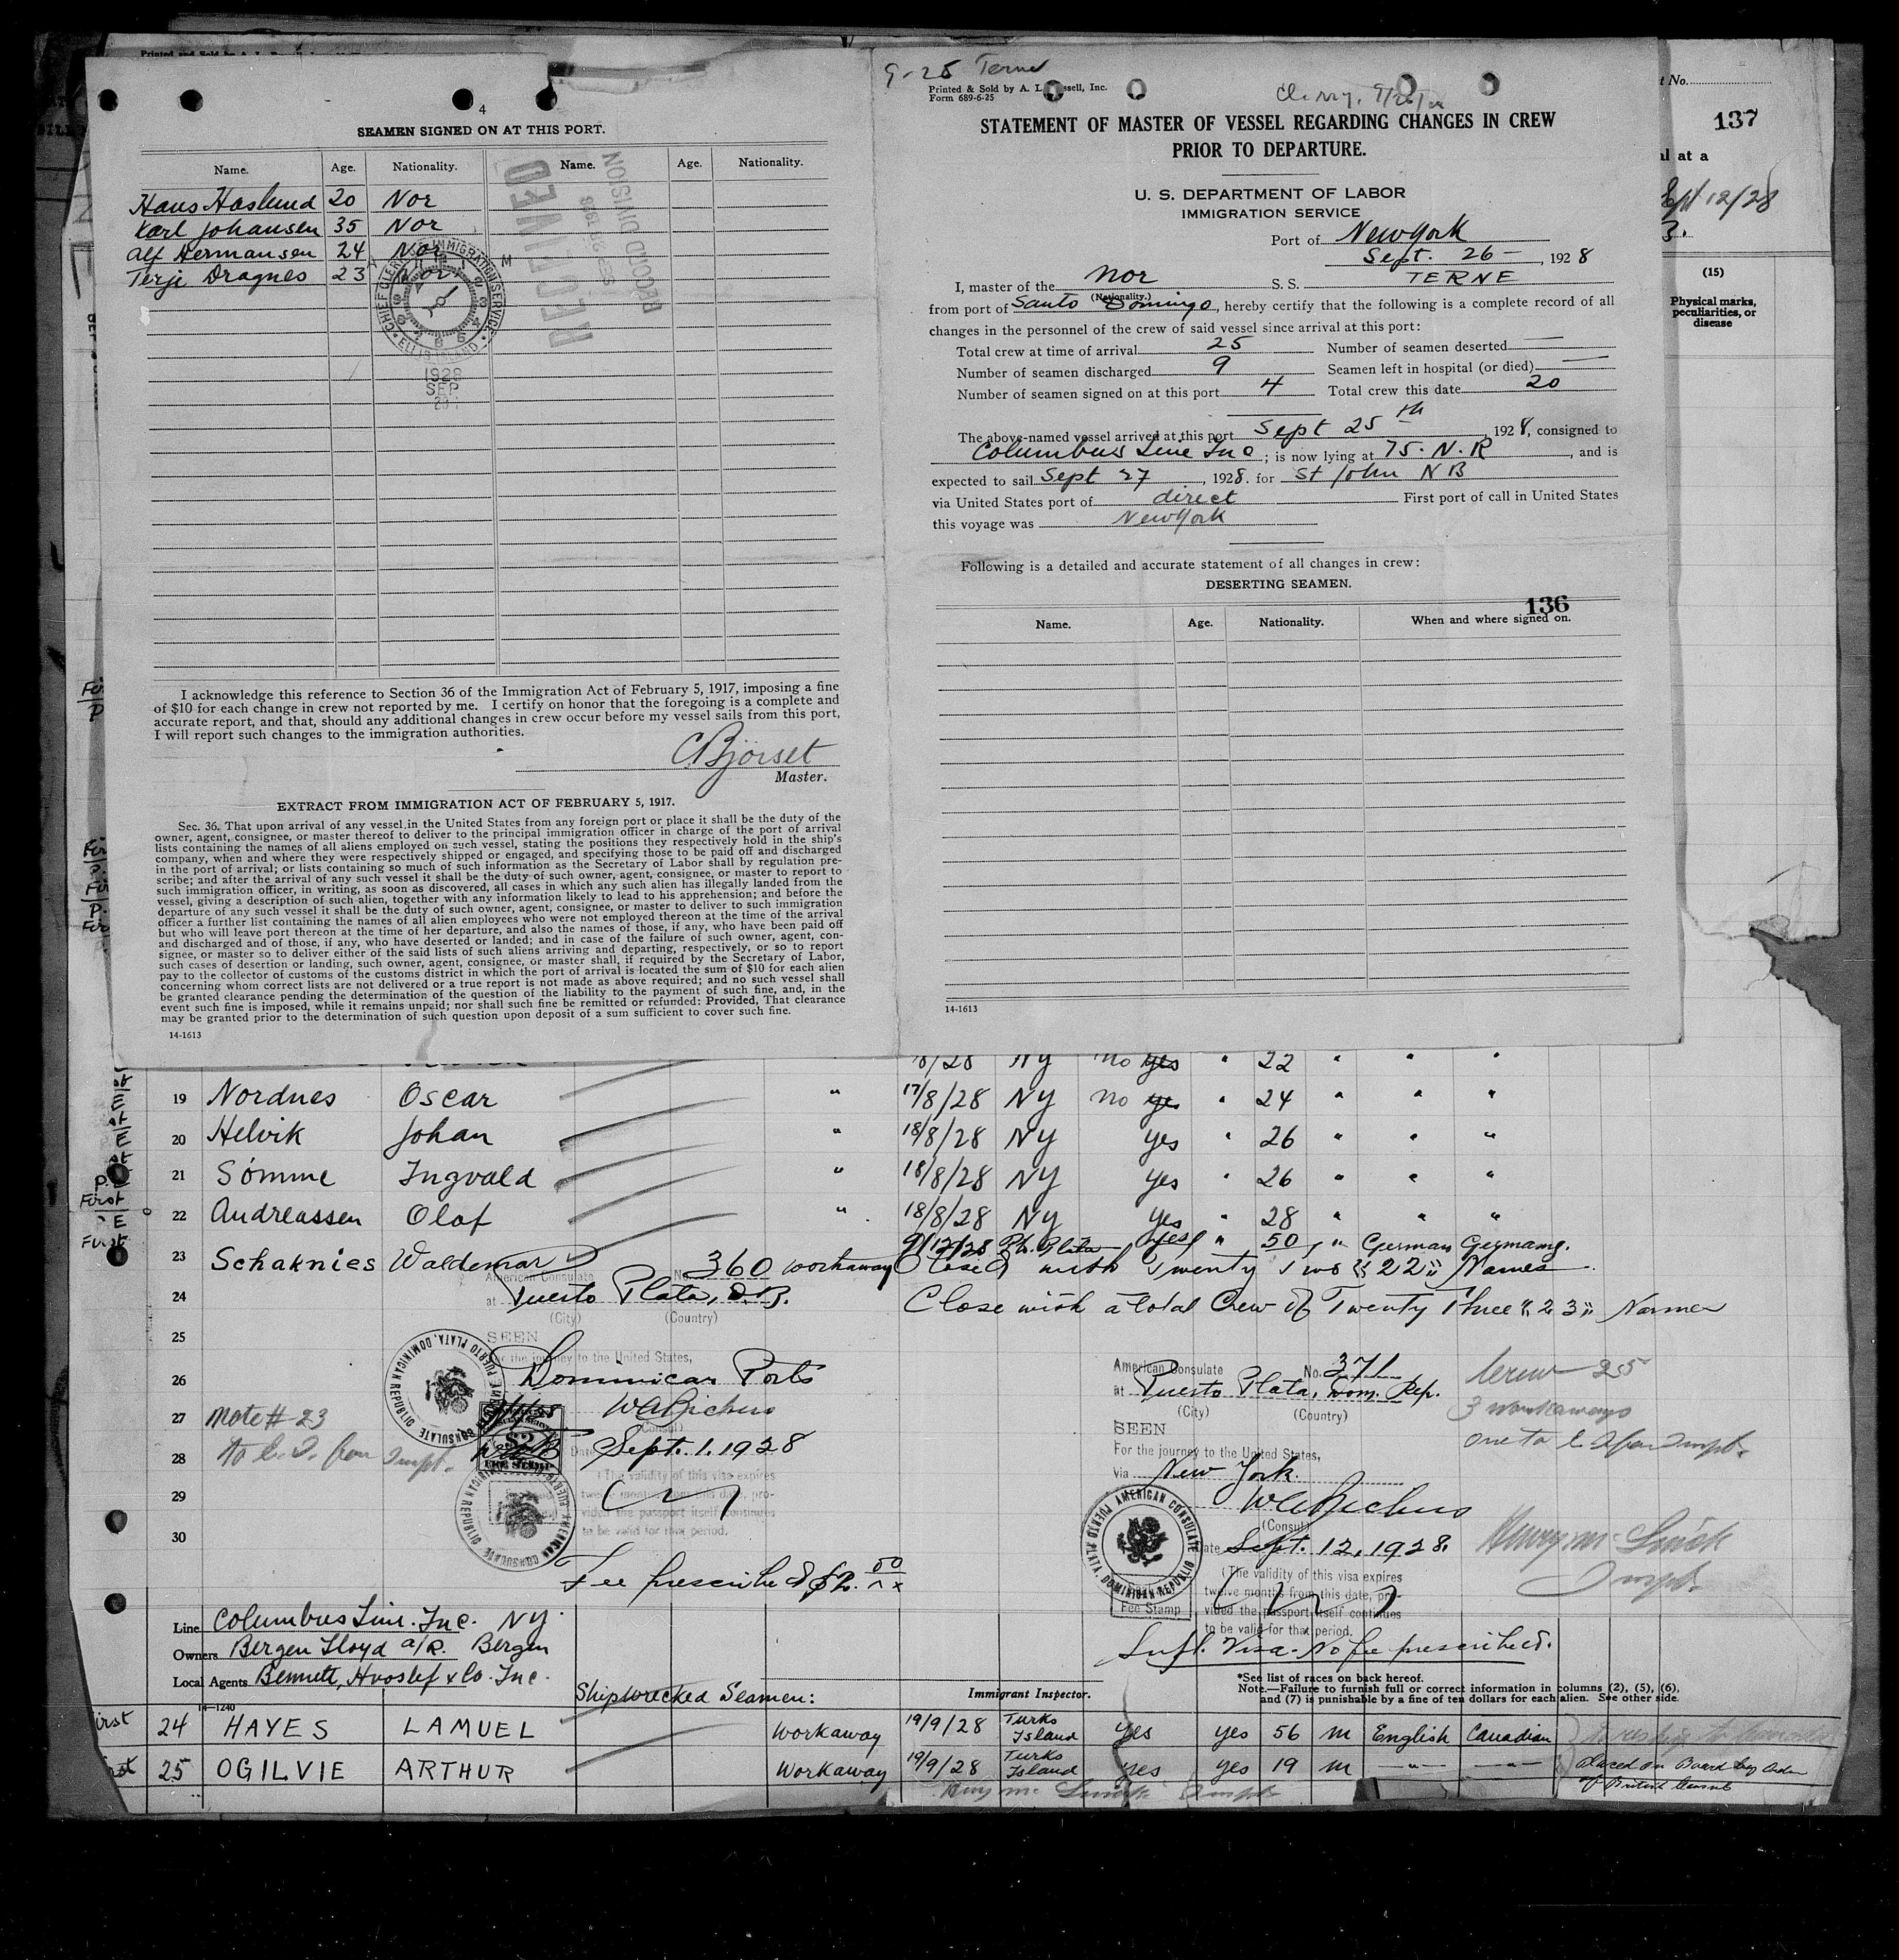 4
SEAMEN SIGNED ON AT THIS PORT.
Name. Age. Nationality. Name. Age. Nationality.
Hans Haslund 20 Nor
Karl Johansen 35 Nor
Alf Hermansen 24 Nor
Terje Dragnes 23 Nor
RECEIVED
RECORD DIVISION
CHIEF CLERK IMMIGRATION SERVICE
ELLIS ISLAND
1928
SEP
I acknowledge this reference to Section 36 of the Immigration Act of February 5, 1917, imposing a fine
of $10 for each change in crew not reported by me. I certify on honor that the foregoing is a complete and
accurate report, and that, should any additional changes in crew occur before my vessel sails from this port,
I will report such changes to the immigration authorities.
C Bjørset
Master.
EXTRACT FROM IMMIGRATION ACT OF FEBRUARY 5, 1917.
Sec. 36. That upon arrival of any vessel in the United States from any foreign port or place it shall be the duty of the
owner, agent, consignee, or master thereof to deliver to the principal immigration officer in charge of the port of arrival
lists containing the names of all aliens employed on such vessel, stating the positions they respectively hold in the ship's
company, when and where they were respectively shipped or engaged, and specifying those to be paid off and discharged
in the port of arrival; or lists containing so much of such information as the Secretary of Labor shall by regulation pre-
scribe; and after the arrival of any such vessel it shall be the duty of such owner, agent, consignee, or master to report to
such immigration officer, in writing, as soon as discovered, all cases in which any such alien has illegally landed from the
vessel, giving a description of such alien, together with any information likely to lead to his apprehension; and before the
departure of any such vessel it shall be the duty of such owner, agent, consignee, or master to deliver to such immigration
officer a further list containing the names of all alien employees who were not employed thereon at the time of the arrival
but who will leave port thereon at the time of her departure, and also the names of those, if any, who have been paid off
and discharged and of those, if any, who have deserted or landed; and in case of the failure of such owner, agent, con-
signee, or master so to deliver either of the said lists of such aliens arriving and departing, respectively, or so to report
such cases of desertion or landing, such owner, agent, consignee, or master shall, if required by the Secretary of Labor,
pay to the collector of customs of the customs district in which the port of arrival is located the sum of $10 for each alien
concerning whom correct lists are not delivered or a true report is not made as above required; and no such vessel shall
be granted clearance pending the determination of the question of the liability to the payment of such fine, and, in the
event such fine is imposed, while it remains unpaid; nor shall such fine be remitted or refunded: Provided, That clearance
may be granted prior to the determination of such question upon deposit of a sum sufficient to cover such fine.
14-1613
9-25 Terne
Printed & Sold by A. L. Russell, Inc.
Form 689-6-25
STATEMENT OF MASTER OF VESSEL REGARDING CHANGES IN CREW
PRIOR TO DEPARTURE.
U. S. DEPARTMENT OF LABOR
IMMIGRATION SERVICE
Port of New York
Sept. 26 , 1928
I, master of the Nor S. S. TERNE
(Nationality.)
from port of Santo Domingo, hereby certify that the following is a complete record of all
changes in the personnel of the crew of said vessel since arrival at this port:
Total crew at time of arrival 25 Number of seamen deserted —
Number of seamen discharged 9 Seamen left in hospital (or died) —
Number of seamen signed on at this port 4 Total crew this date 20
The above-named vessel arrived at this port Sept 25th, 1928, consigned to
Columbus Line Inc; is now lying at 75. N. R, and is
expected to sail Sept 27, 1928. for St John N B
via United States port of direct First port of call in United States
this voyage was New York
Following is a detailed and accurate statement of all changes in crew:
DESERTING SEAMEN.
136
Name. Age. Nationality. When and where signed on.
14-1613
t No.
137
al at a
12/28
3.
(15)
Physical marks,
peculiarities, or
disease
18/28 NY no yes " 22 " " "
19 Nordnes Oscar " 17/8/28 NY no yes " 24 " " "
20 Helvik Johan " 18/8/28 NY yes " 26 " " "
21 Sömme Ingvald " 18/8/28 NY yes " 26 " " "
22 Andreassen Olof " 18/8/28 NY yes " 28 " " "
23 Schaknies Waldemar workaway 9/12/28 Pt. Plata yes " 50 " German Germany.
Closed with Twenty Two "22" Names
24 Close with a total Crew of Twenty Three "23" Names
25
26
27
28
29
30
American Consulate No. 360
at Puerto Plata, D.R.
(City) (Country)
SEEN
For the journey to the United States,
Dominican Ports
(Consul)
Date Sept. 1. 1928
(The validity of this visa expires
twelve months from this date, pro-
vided the passport itself continues
to be valid for that period.
AMERICAN CONSULATE PUERTO PLATA, DOMINICAN REPUBLIC
$2
FEE STAMP
Fee prescribed $2.00
note # 23
American Consulate No. 371
at Puerto Plata, Dom. Rep.
(City) (Country)
SEEN
For the journey to the United States,
Via New York.
(Consul)
Date Sept. 12, 1928.
(The validity of this visa expires
twelve months from this date, pro-
vided the passport itself continues
to be valid for that period.
AMERICAN CONSULATE PUERTO PLATA, DOMINICAN REPUBLIC
Fee Stamp
Supl. Visa - No fee prescribed.
Crew 25
3 workaways
Line Columbus Line. Inc. NY.
Owners Bergen Lloyd a/R. Bergen
Local Agents Bennett, Hvoslef & Co. Inc.
14-1240
Shipwrecked Seamen:
Immigrant Inspector.
*See list of races on back hereof.
Note.—Failure to furnish full or correct information in columns (2), (5), (6),
and (7) is punishable by a fine of ten dollars for each alien. See other side.
First 24 HAYES LAMUEL Workaway 19/9/28 Turks Island yes yes 56 m English Canadian
25 OGILVIE ARTHUR Workaway 19/9/28 Turks Island yes yes 19 m —"— —"— Placed on Board by order
of British Consul